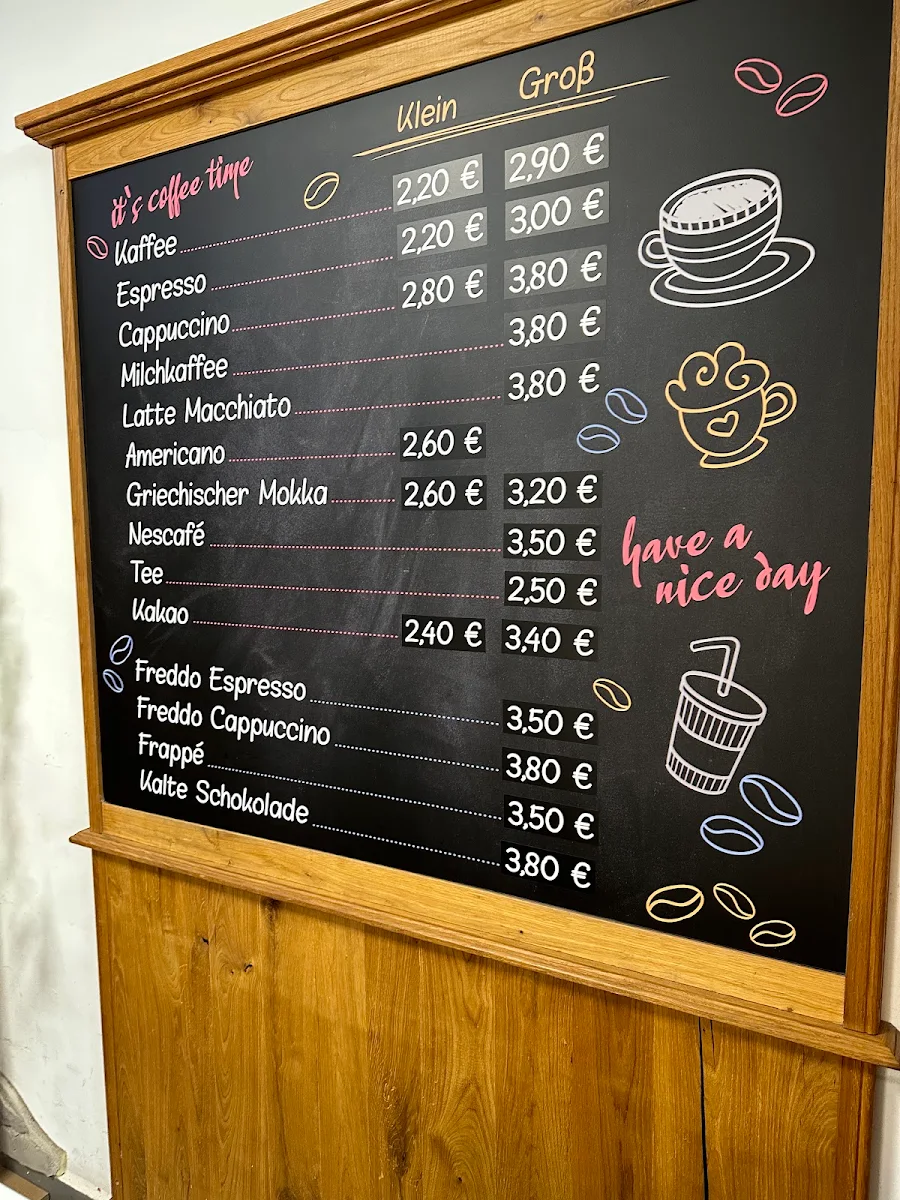 Klein Groß
it's coffee time
Kaffee 2,20 € 2,90 €
Espresso 2,20 € 3,00 €
Cappuccino 2,80 € 3,80 €
Milchkaffee 3,80 €
Latte Macchiato 3,80 €
Americano 2,60 €
Griechischer Mokka 2,60 € 3,20 €
Nescafé 3,50 €
Tee 2,50 €
Kakao 2,40 € 3,40 €
Freddo Espresso 3,50 €
Freddo Cappuccino 3,80 €
Frappé 3,50 €
Kalte Schokolade 3,80 €
have a
nice day